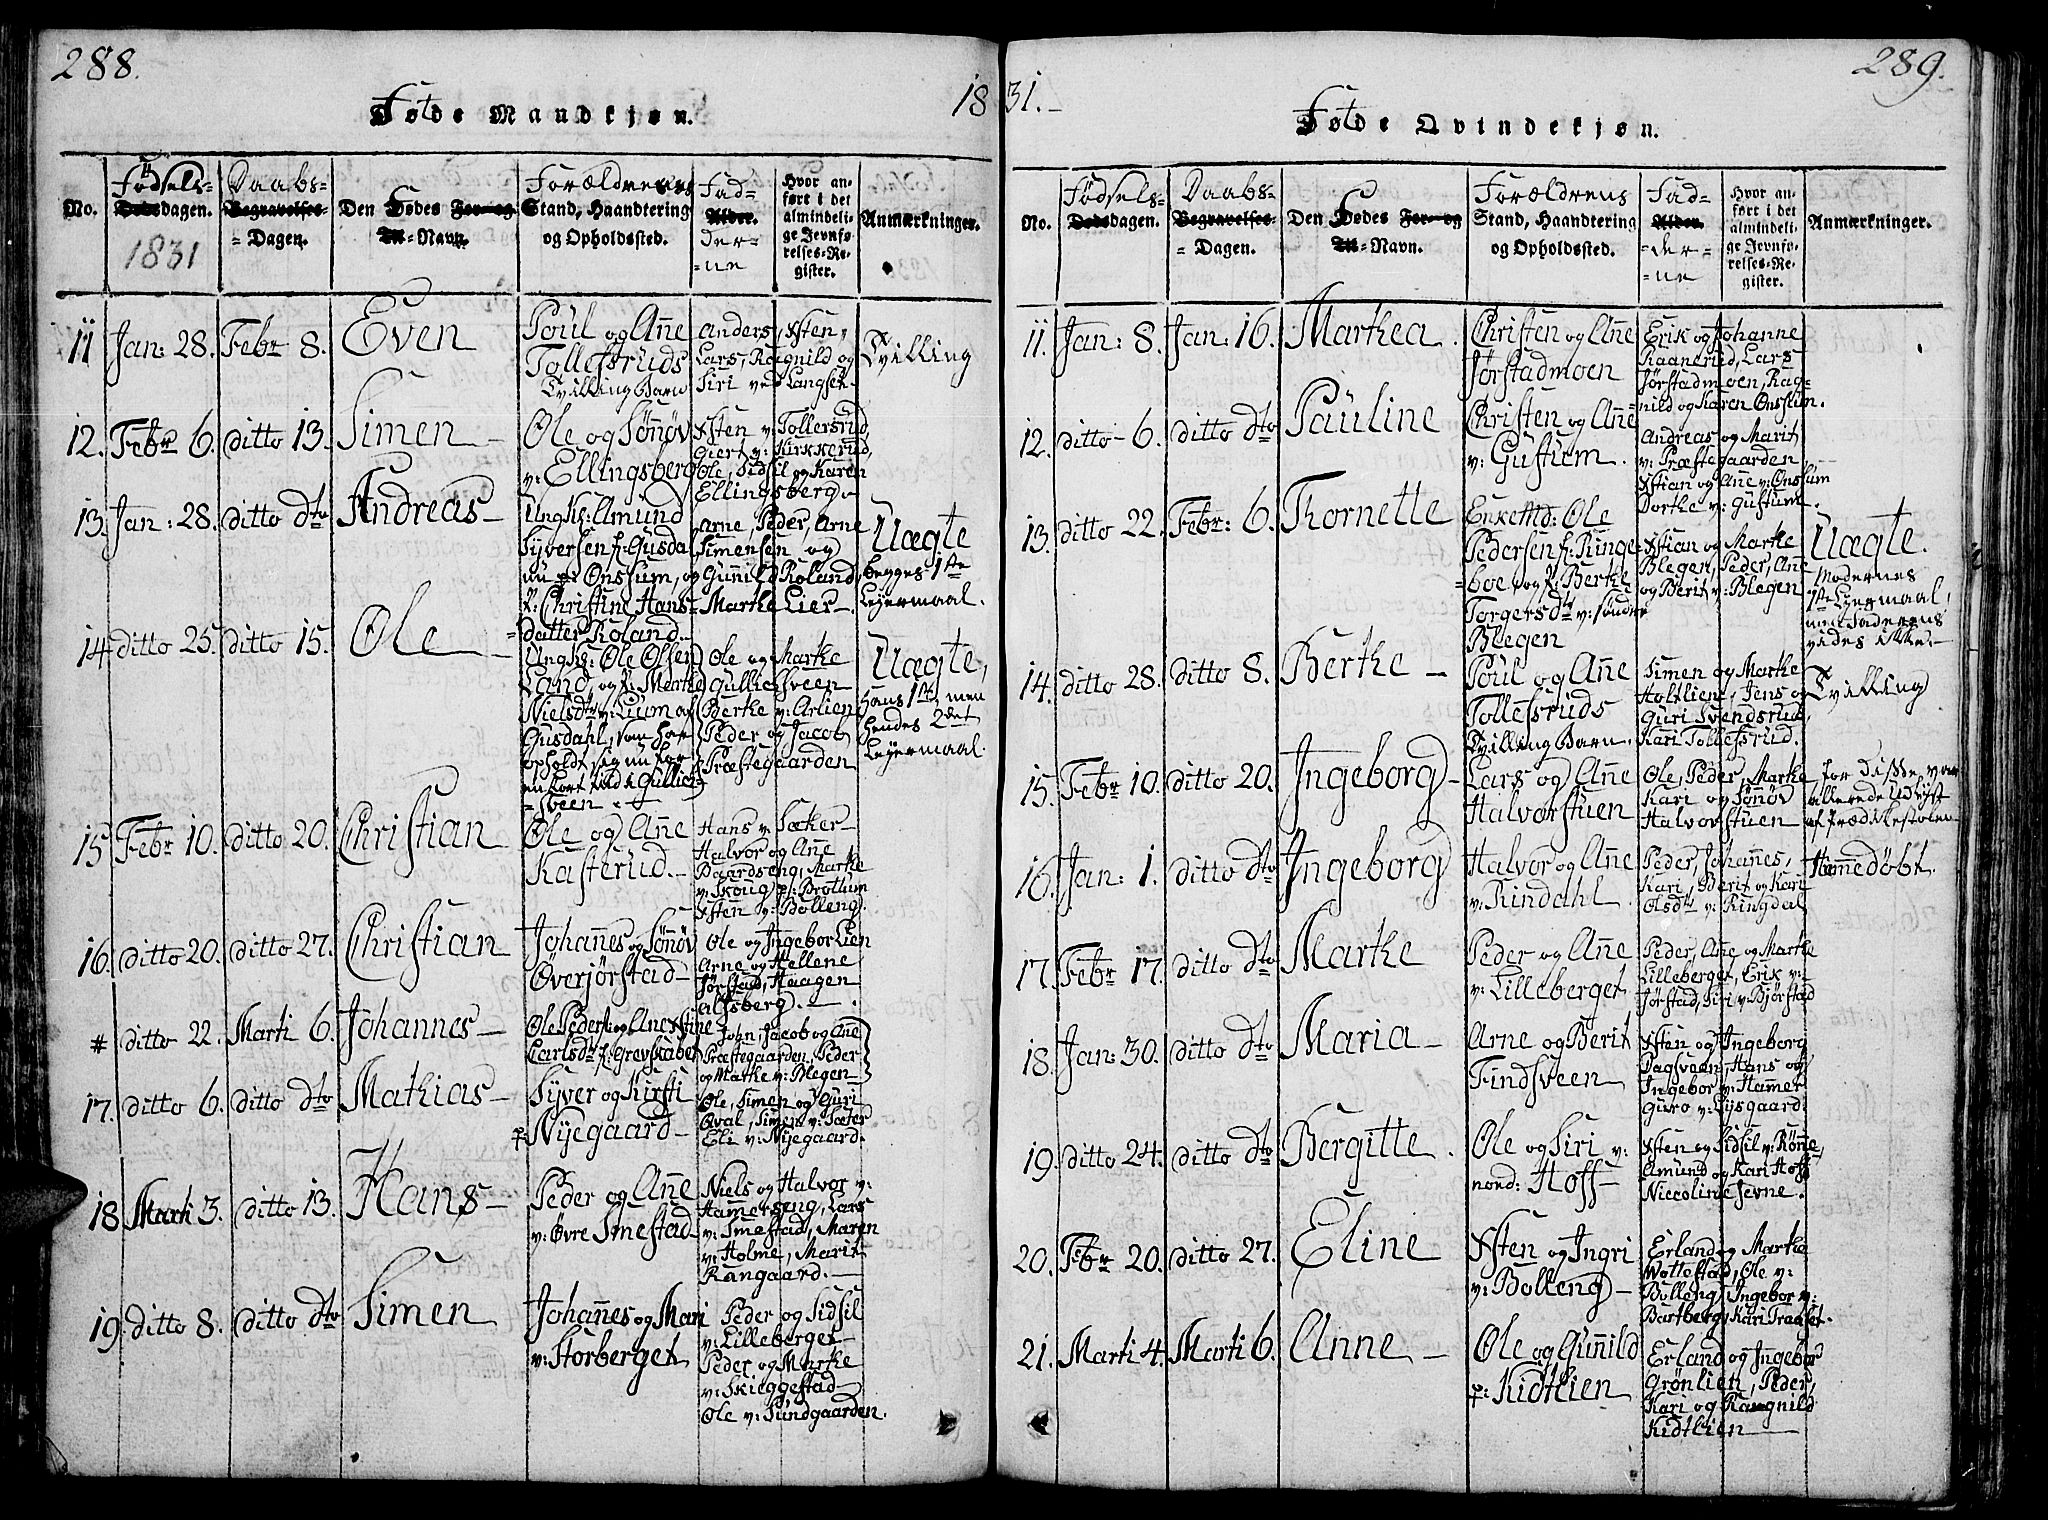 288.
18
Føde Mandkjøn.
No.
Fødsels-
dagen.
1831
Daabs-
Begravelses-
= Dagen.
Den Fødes For- og
M-Navn.
Forældrenes
Stand, Haandtering
og Opholdssted.
Fad-
Alder.
der-
ne
Hvor an-
ført i det
almindeli-
ge Jevnfø-
relses-Re-
gister.
Anmærkninger.
11 Jan: 28. Febr 8. Even
Poul og Ane
Tollefsruds
Tvilling Barn
Anders, Xsten,
Lars, Ragnild og
Siri ved Langset.
Tvilling
12. Febr 6. ditto 13. Simen
Ole og Sønøv
v: Ellingsberg
Xsten v: Tollersrud,
Giert v: Kirkkerud,
Ole, Sidsil og Karen
Ellingsberg
13. Jan: 28. ditto dto Andreas
UngK: Amund
Syversen f: Gusdal
nu p: Onssum, og
P: Christine Hans-
datter Roland
Arne, Peder, Arne
Simensen og
Gunild Roland,
Marthe Lier.
Uægte
begges 1ste
Lejermaal.
14 ditto 25. ditto 15. Ole
UngK: Ole Olsen
Sand, og P: Marthe
Nielsdtr v: Lium af
Gusdahl, som har
opholdt sig nu for
en kort tid i Gullich-
=Sveen
Ole og Marthe
Gullichsveen
Berthe v: Arlien
Peder og Jacob
Præstegaarden
Uægte,
Hans 1ste, men
hendes 2det
Lejermaal.
15 Febr 10. ditto 20. Christian
Ole og Ane
Kasterud.
Hans v: Sæker
Halvor og Ane
Baardseng, Marthe
v: Skoug p: Brottum
Xsten v: Bolleng.
16. ditto 20. ditto 27. Christian
Johanes og Sønøv
Øverjørstad
Ole og Ingebor Lien
Arne og Hellene
Jørstad, Haagen
Alfsberg.
# ditto 22. Marti 6. Johannes
Ole Peders: og Ane Xstine
Carlsdtr f: Grevskabet
John, Jacob og Ane
Præstegaarden, Peder
og Marthe v: Blegen
17. ditto 6. ditto dto Mathias
Syver og Kirsti
p: Nyegaard
Ole, Simen og Guri
Qval, Simen v: Sæter
Eli v: Nyegaard.
18 Marti 3. ditto 13. Hans
Peder og Ane
v: Øvre Smestad
Niels og Halvor v:
Hamerseng, Lars
v: Smestad, Maren
v: Holme, Marit
Rangaard.
19. ditto 8. ditto dto Simen
Johanes og Mari
v: Storberget
Peder og Sidsil
v: Lilleberget
Peder og Marthe
v: Skieggestad
Ole v: Sundgaarden.
31.
289.
Føde Qvindekjøn.
No.
Fødsels-
dagen.
Daabs-
Begravelses-
= Dagen.
Den Fødes For- og
M-Navn.
Forældrens
Stand, Haandtering
og Opholdssted.
Fad-
Alder.
der-
ne
Hvor an-
ført i det
almindeli-
ge Jevnfø-
relses-Re-
gister.
Anmærkninger.
11. Jan: 8. Jan: 16. Marthea.
Christen og Ane
Jørstadmoen
Erik og Johanne
Kaanerud, Lars
Jørstadmoen, Rag-
nild og Karen Onssum.
12. ditto 6. ditto dto Pauline
Christen og Ane
v: Gustum.
Andreas og Marit
v: Præstegaarden
Xstian og Ane v: Onsum
Dorthe v: Gustum.
13. ditto 22. Febr: 6. Thornette
EnkeMd: Ole
Pedersen f: Ringe-
=boe og P: Berthe
Torgersdtr v: Søndre
Blegen
Xstian og Marthe
Blegen, Peder, Ane
og Berit v: Blegen
Uægte.
Modernes
1ste Lejermaal,
men Faderens
vides ikke.
14. ditto 28. ditto 8. Berthe
Poul og Ane
Tollefsruds
Tvilling Barn.
Simen og Marthe
Holtlien, Jens og
Guri Svendsrud,
Kari Tollefsrud.
Tvilling
15. Febr 10. ditto 20. Ingeborg
Lars og Ane
Halvorstuen
Ole, Peder, Marthe
Kari og Sønøv
Halvorstuen
for disse var
allerede udlyst
af Prædikestolen
16. Jan: 1. ditto dto Ingeborg
Halvor og Ane
v: Rindahl.
Peder, Johannes,
Kari, Berit og Kari
Olsdtr v: Ringdal
Hiemedøbt.
17. Febr 17. ditto dto Marthe
Peder og Ane
v: Lilleberget
Peder, Ane og Marthe
Lilleberget, Erik v:
Jørstad, Siri v: Bjørstad
18. Jan: 30. ditto dto Maria
Arne og Berit
Findsveen
Xsten og Ingeborg
Dagsveen, Hans og
Ingebor v: Hamer
Guro v: Lysgaard.
19. ditto 24. ditto dto Bergitte.
Ole og Siri v:
nord: Hoff
Xsten og Sidsil v: Rønne,
Amund og Kari Hoff
Niccoline Jevne.
20. Febr 20. ditto 27. Eline
Xsten og Ingri
v: Bolleng
Erland og Marthe
Wottestad, Ole v:
Bolleng, Ingebor v:
Bartberg, Kari Traaset.
21. Marti 4. Marti 6. Anne
Ole og Gunild
p: Kidtlien
Erland og Ingebor
Grønlien, Peder,
Kari og Rangnild
Kidtlien